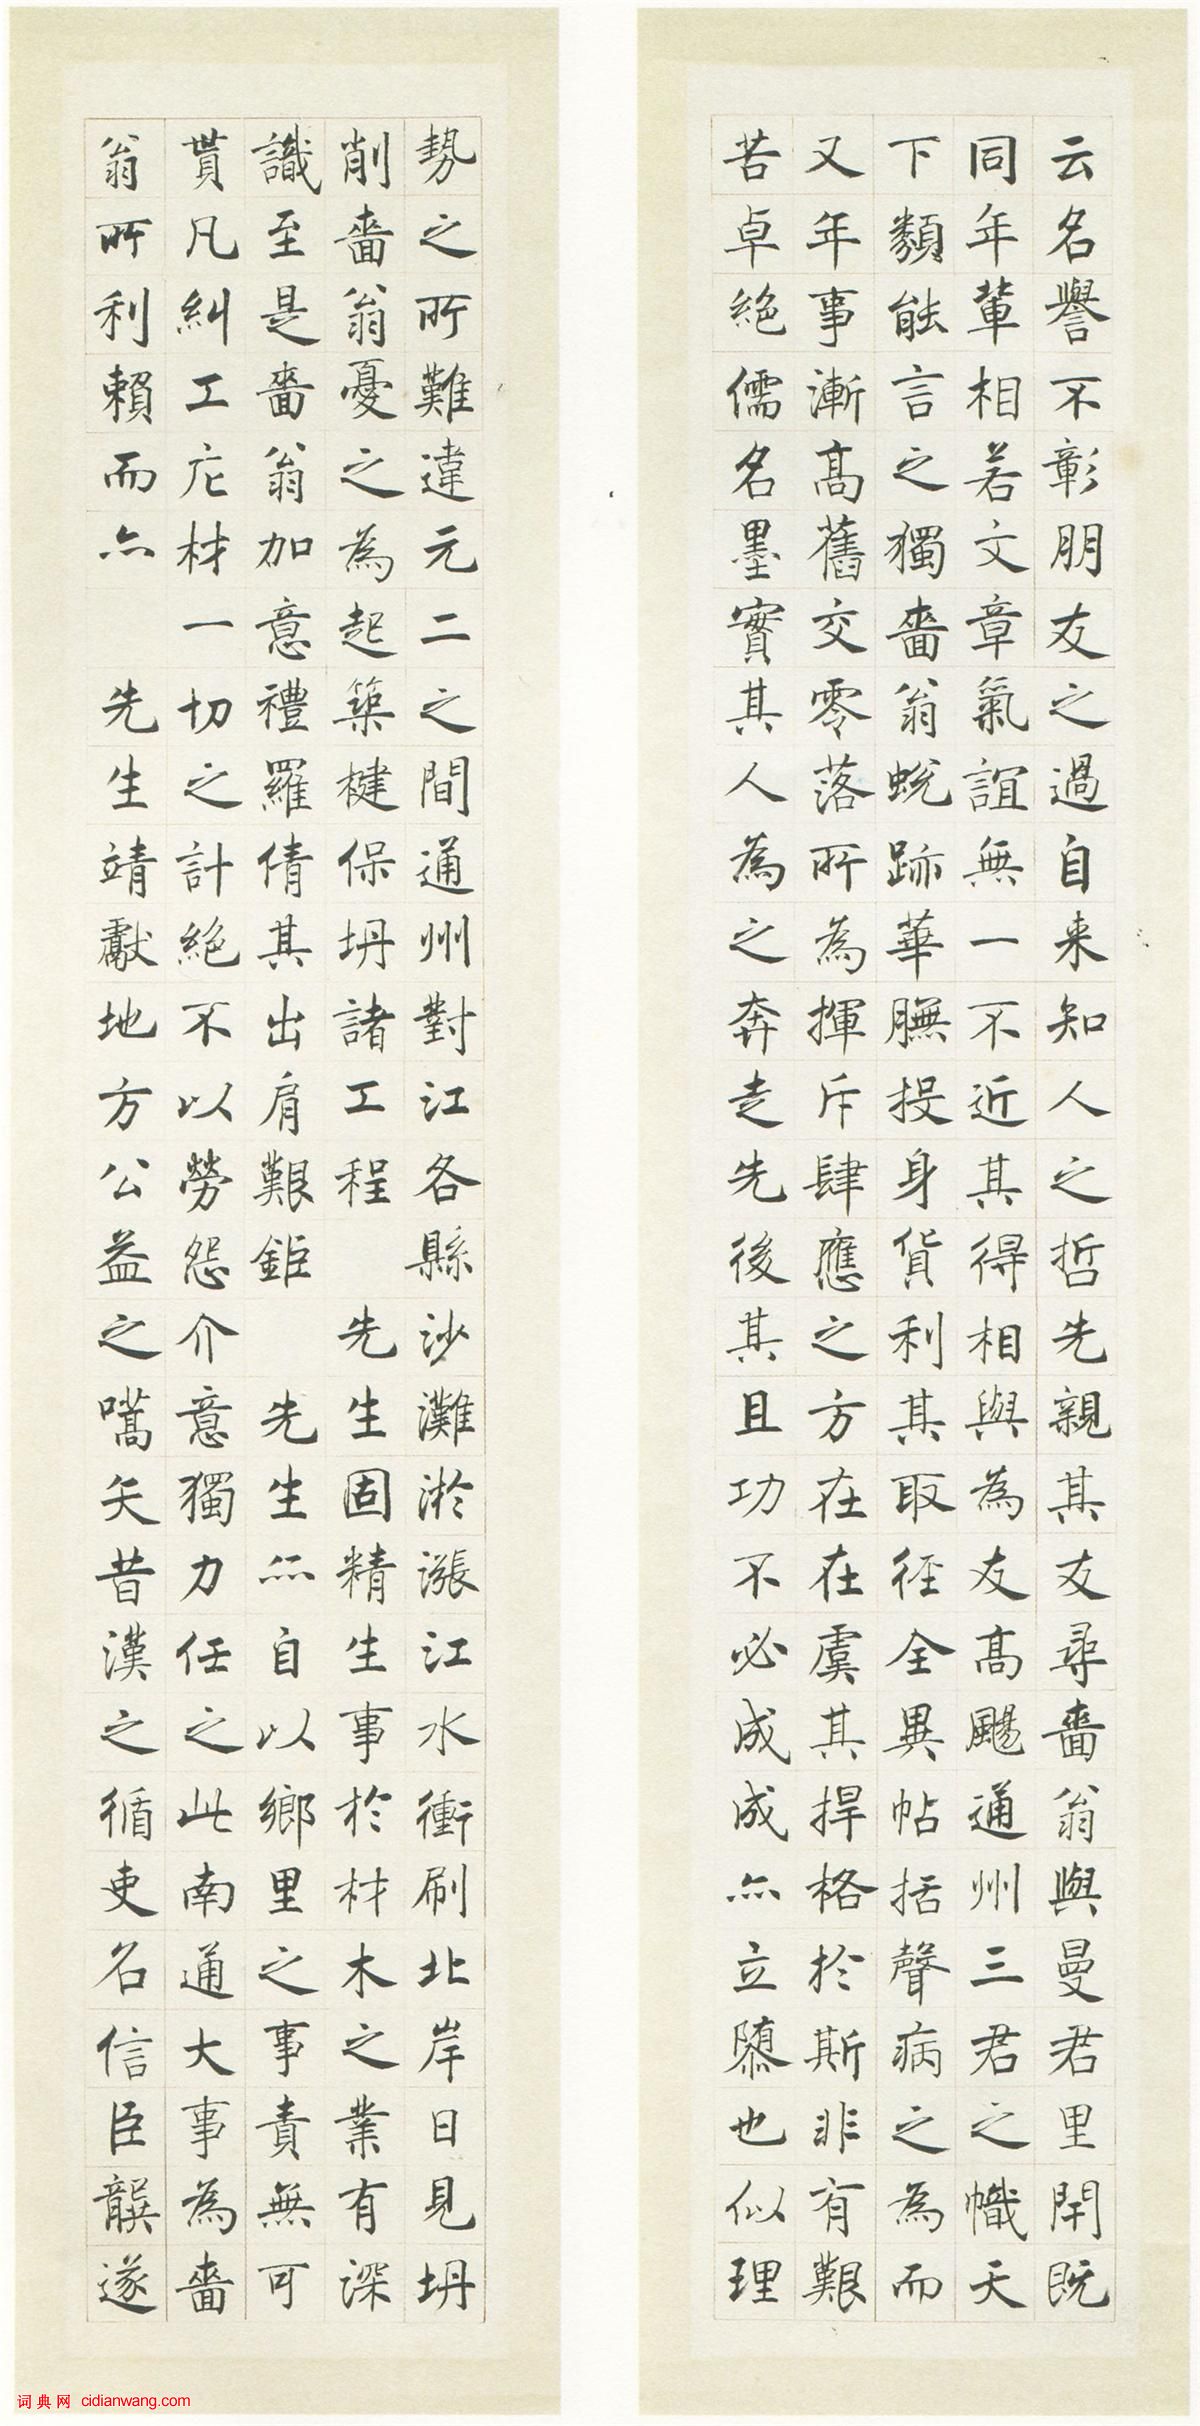 云名譽不彰朋友之過自来知人之哲先親其友尋嗇翁與曼君里閈既
同年輩相若文章氣誼無一不近其得相與為友高颺通州三君之幟天
下類能言之獨嗇翁蛻跡華膴投身貨利其取徑全異帖括聲病之為而
又年事漸高舊交零落所為揮斥肆應之方在在虞其捍格於斯非有艱
苦卓絕儒名墨實其人為之奔走先後其且功不必成成亦立隳也似理
勢之所難違元二之間通州對江各縣沙灘淤漲江水衝刷北岸日見坍
削嗇翁憂之為起築楗保坍諸工程 先生固精生事於材木之業有深
識至是嗇翁加意禮羅倩其出肩艱鉅 先生亦自以鄉里之事責無可
貰凡糾工庀材一切之計絕不以勞怨介意獨力任之此南通大事為嗇
翁所利賴而亦 先生靖獻地方公益之嚆矢昔漢之循吏名信臣龔遂
词典网 cidianwang.com